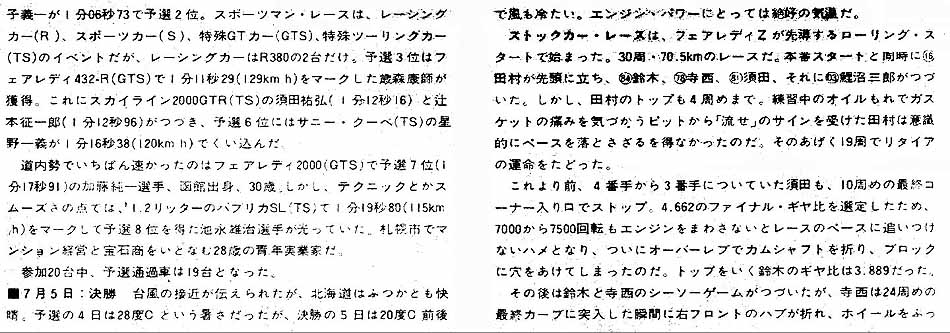 子義一が1分06秒73で予選2位。スポーツマン・レースは、レーシング
カー(R)、スポーツカー(S)、特殊GTカー(GTS)、特殊ツーリングカー
(TS)のイベントだが、レーシングカーはR380の2台だけ。予選3位はフ
ェアレディ432-R(GTS)で1分11秒29(129km h)をマークした歳森康師が
獲得。これにスカイライン2000GTR(TS)の須田祐弘(1分12秒16)と辻
本征一郎(1分12秒96)がつづき、予選6位にはサニー・クーペ(TS)の星
野一義が1分16秒38(120km h)でくい込んだ。
道内勢でいちばん速かったのはフェアレディ2000(GTS)で予選7位(1
分17秒91)の加藤純一選手、函館出身、30歳。しかし、テクニックとかス
ムーズさの点では、1.2リッターのパブリカSL(TS)で1分19秒80(115km
h)をマークして予選8位を得た池永雄治選手が光っていた。札幌市でマ
ンション経営と宝石商をいとなむ28歳の青年実業家だ。
参加20台中、予選通過車は19台となった。
■7月5日：決勝 台風の接近が伝えられたが、北海道はふつかとも快
晴。予選の4日は28度Cという暑さだったが、決勝の5日は20度C前後
で風も冷たい。エンジン・パワーにとっては絶好の気温だ。
ストックカー・レースは、フェアレディZが先導するローリング・ス
タートで始まった。30周・70.5kmのレースだ。本番スタートと同時に⑯
田村が先頭に立ち、鈴木、寺西、須田、それに鯉沼三郎がつづ
いた。しかし、田村のトップも4周めまで。練習中のオイルもれでガス
ケットの痛みを気づかうピットから「流せ」のサインを受けた田村は意識
的にペースを落とさざるを得なかったのだ。そのあげく19周でリタイア
の運命をたどった。
これより前、4番手から3番手についていた須田も、10周めの最終コ
ーナー入り口でストップ。4.662のファイナル・ギヤ比を選定したため、
7000から7500回転もエンジンをまわさないとレースのペースに追いつけ
ないハメとなり、ついにオーバーレブでカムシャフトを折り、ブロック
に穴をあけてしまったのだ。トップをいく鈴木のギヤ比は3.889だった。
その後は鈴木と寺西のシーソーゲームがつづいたが、寺西は24周めの
最終カーブに突入した瞬間に右フロントのハブが折れ、ホイールをふっ